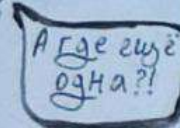 А где ещё
одна?!